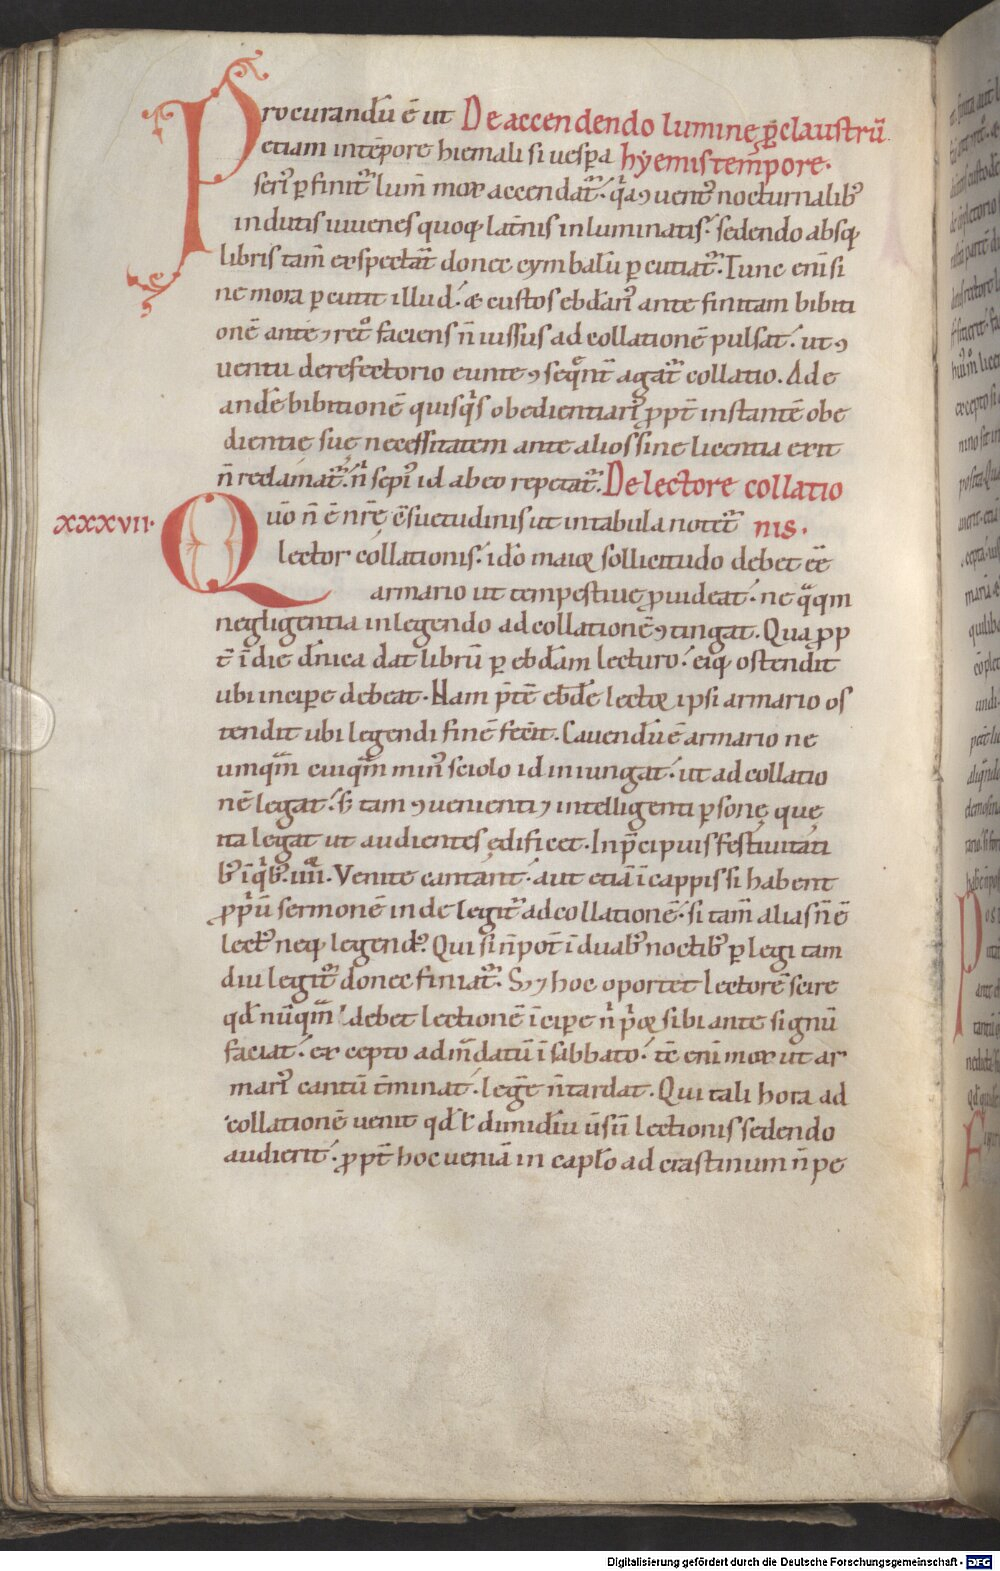 Procurandū ē ut De accendendo lumine ꝑ claustrū
etiam intēpore hiemali si uespa hyemis tempore.
seri᾽ ꝑfinit᾽ lum̄ mox accendat᾽. q̇a ꝯuent᾽ nocturnalib᾽
indutis iuuenes quoq; lat̄nis inluminatis. sedendo absq;
libris tam̄ exspectāt donec cymbalū ꝑcutiat᾽. Tunc enī si
ne mora ꝑcutit illud. æcustos ebd̄ari᾽ ante finitam bibiti
onē ante ⁊ ret᾽ faciens n̄ iussus ad collationē pulsat. ut ꝯ
uentu derefectorio eunte ꝯseq̄nt᾽ agat᾽ collatio. Ade
andē bibitionē quisq᾽s obedientiari᾽ ꝓpt̄ instantē obe
dientię suę necessitatem ante alios sine licentia exit
n̄ reclamat᾽. n̄ sepi᾽ id ab eo repetat᾽. De lectore collatio
xxxvii. Quō n̄ ē nr̄ę ꝯsuetudinis ut intabula notet᾽ nis.
lector collationis. idō maior sollicitudo debet ēē
armario ut tempestiuę ꝓuideat. ne q̄q̄m
negligentia inlegendo ad collationē ꝯtingat. Qua ꝓp
t̄ ī die dn̄ica dat librū ꝑ ebd̄am lecturo. eiq; ostendit
ubi incipe debeat. Nam p᾽tē ebd̄e lector ipsi armario os
tendit ubi legendi finē fecit. Cauendū ē armario ne
umq̄m cuiq̄m min᾽ sciolo id iniungat. ut ad collatio
nē legat. s; tam ꝯuenienti ⁊ intelligenti ꝑsonę quę
ita legat ut audientes ędificet. In p̄cipuis festiuitati
b᾽ ī q᾽b᾽. iiii. Venite cantant. aut etiā ī cappis si habent
ꝓpriū sermonē inde legit᾽ ad collationē. si tam̄ alias n̄ ē
lect᾽ neq; legend᾽. Qui si n̄ pot̄ ī duab᾽ noctib᾽ ꝑlegi tam
diu legit᾽ donec finiat᾽. S; ⁊ hoc oportet lectorē scire
qd̄ nūq̄m debet lectionē īcipe n᾽ p᾽or sibi ante signū
faciat. excepto ad mandatū ī sabbato. t̄c enī mox ut ar
mari᾽ cantū t̄minat. legē n̄ tardat. Qui tali hora ad
collationē uenit qd̄ ł dimidiū ūsū lectionis sedendo
audierit. ꝓpt̄ hoc ueniā in caplo ad crastinum n̄ pe
Digitalisierung gefördert durch die Deutsche Forschungsgemeinschaft - DFG